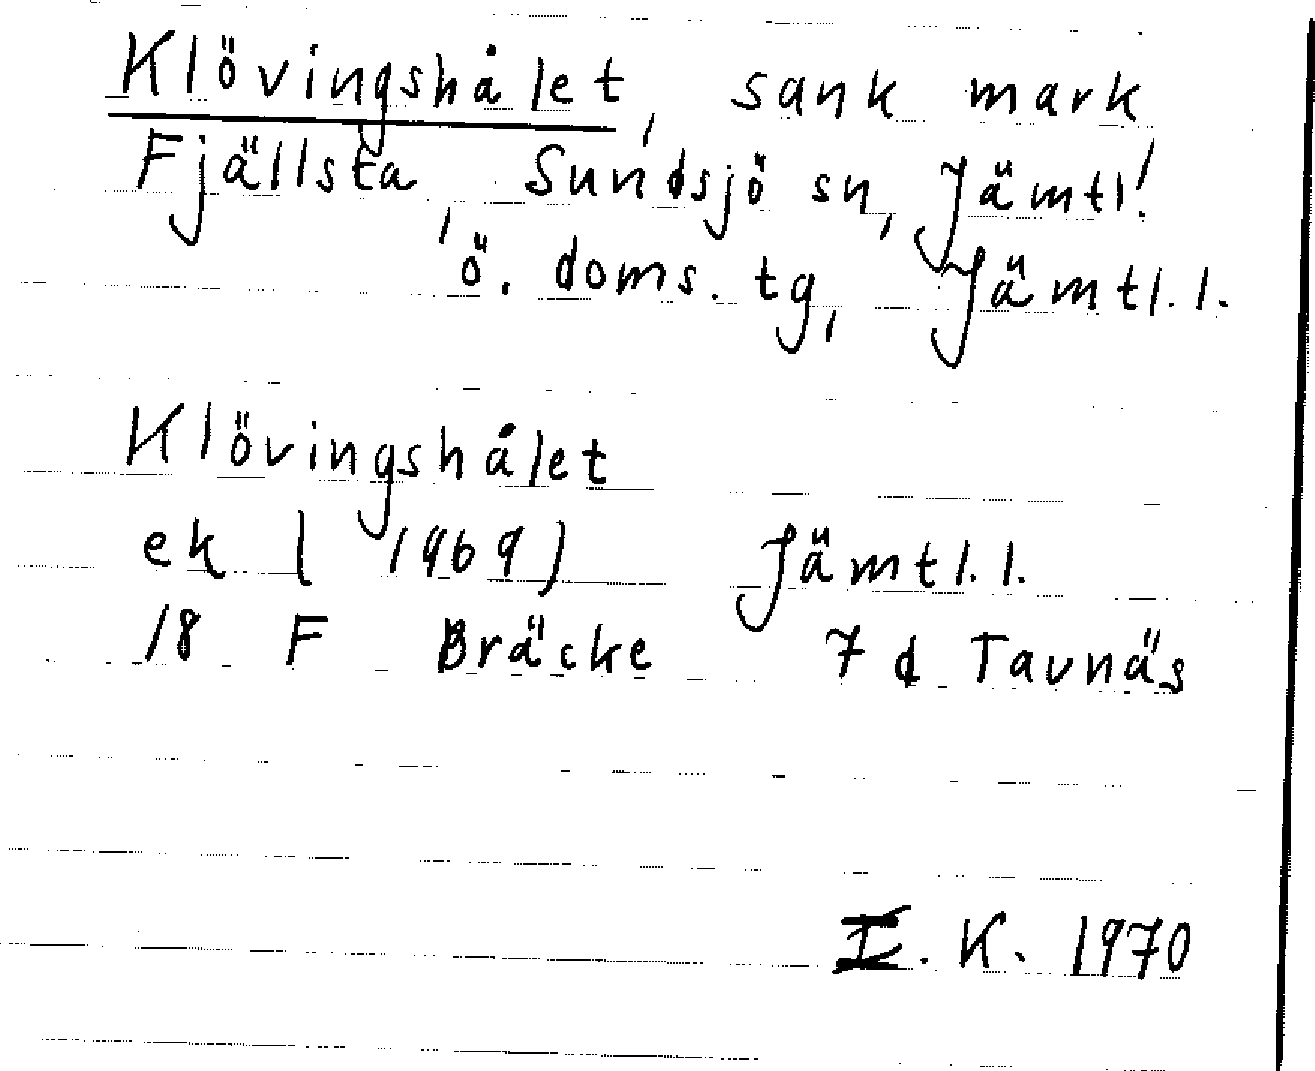 Klövingshålet, sank mark
Fjällsta, Sundsjö sn, Jämtl!
ö. doms. tg, Jämtl. l.
Klövingshålet
ek ( 1969) Jämtl. l.
18 F Bräcke 7 d Tavnäs
I. K. 1970